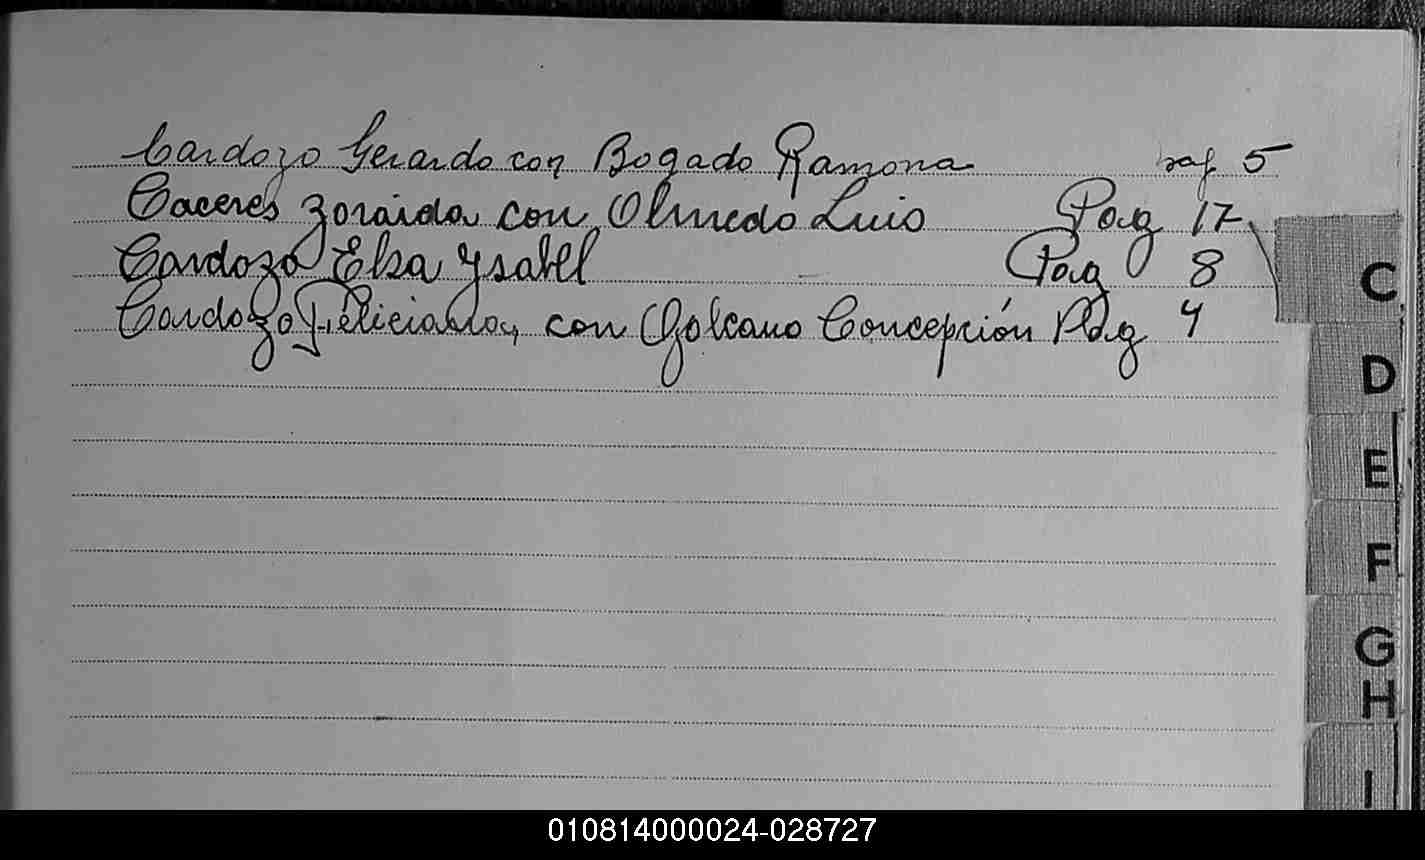 Cardozo Gerardo con Bogado Ramona pag 5
Caceres Zoraida con Olmedo Luis Pag 17
Cardozo Elsa Ysabel Pag 8
Cardozo Feliciano, con Galeano Concepción Pag 4
C
D
E
F
G
H
I
010814000024-028727